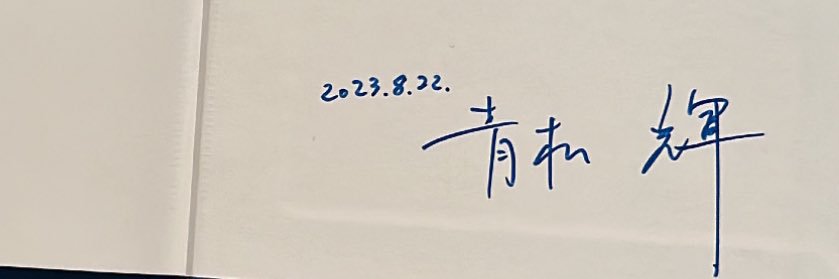 2023.8.22.
青松 輝